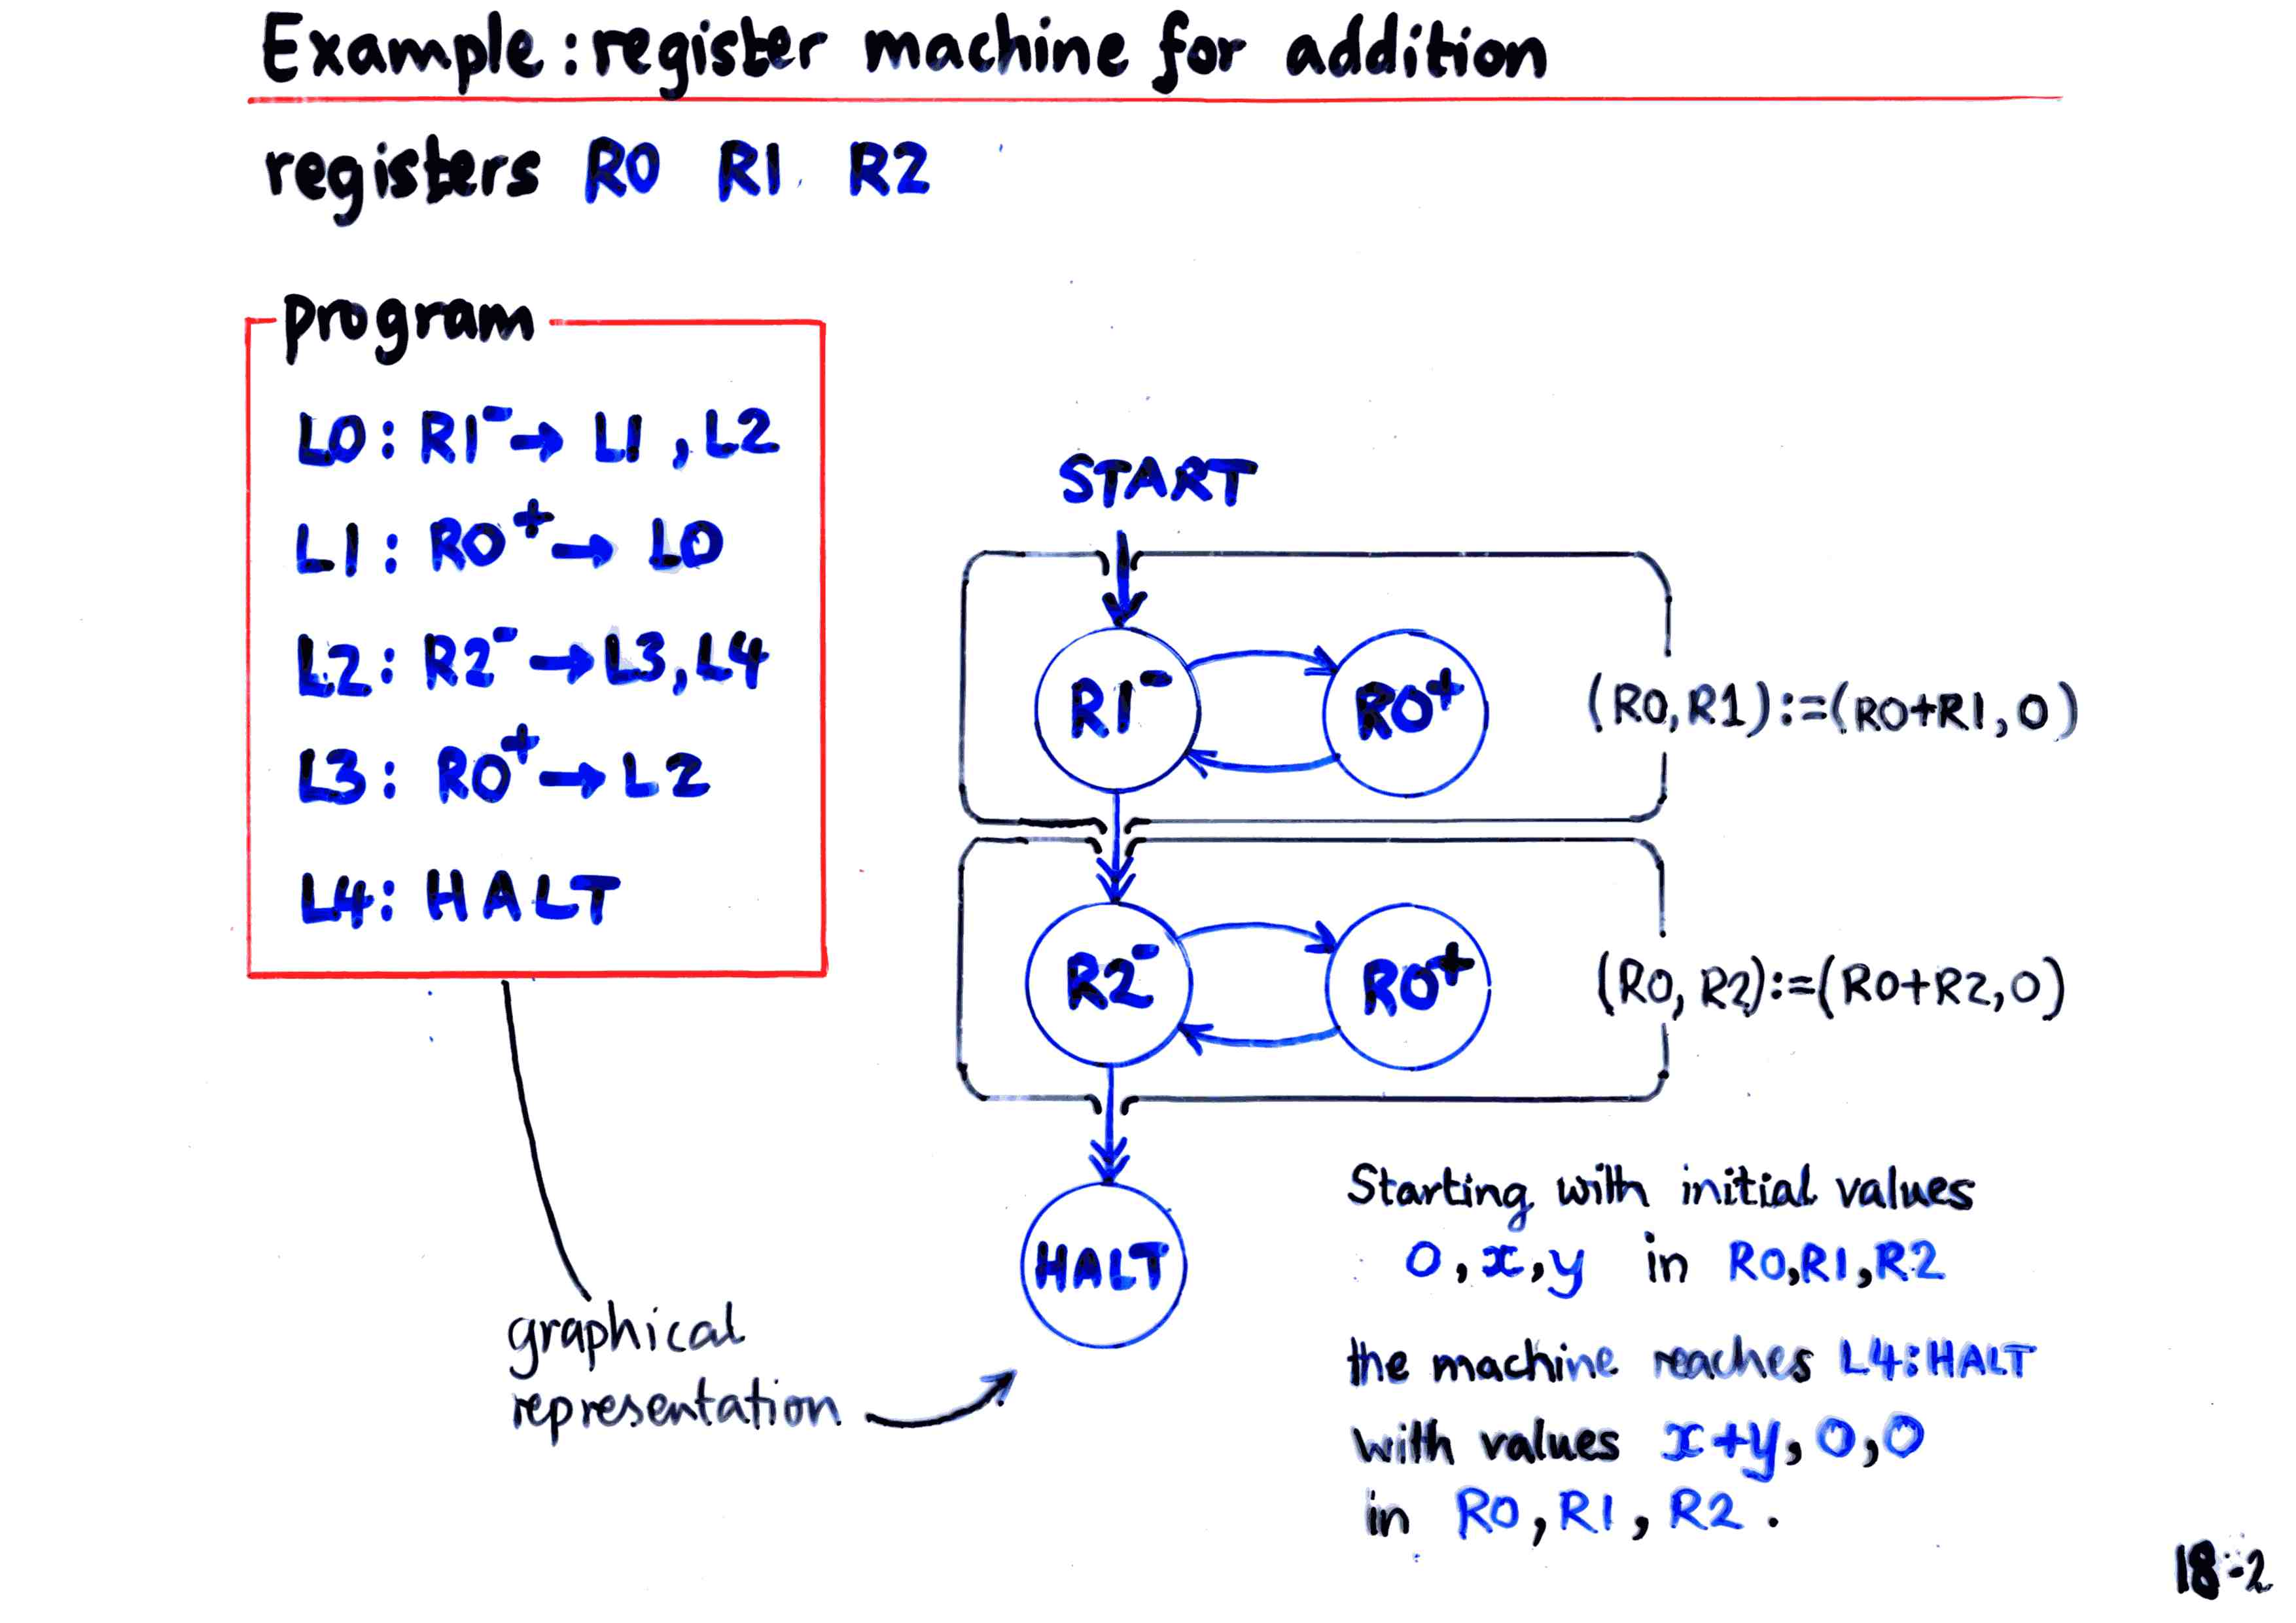 Example: register machine for addition
registers R0 R1 R2
program
L0: R1⁻ → L1, L2
L1: R0⁺ → L0
L2: R2⁻ → L3, L4
L3: R0⁺ → L2
L4: HALT
graphical
representation
START
R1⁻ R0⁺ (R0, R1):=(R0+R1, 0)
R2⁻ R0⁺ (R0, R2):=(R0+R2, 0)
HALT
Starting with initial values
0, x, y in R0, R1, R2
the machine reaches L4: HALT
with values x+y, 0, 0
in R0, R1, R2.
18:2